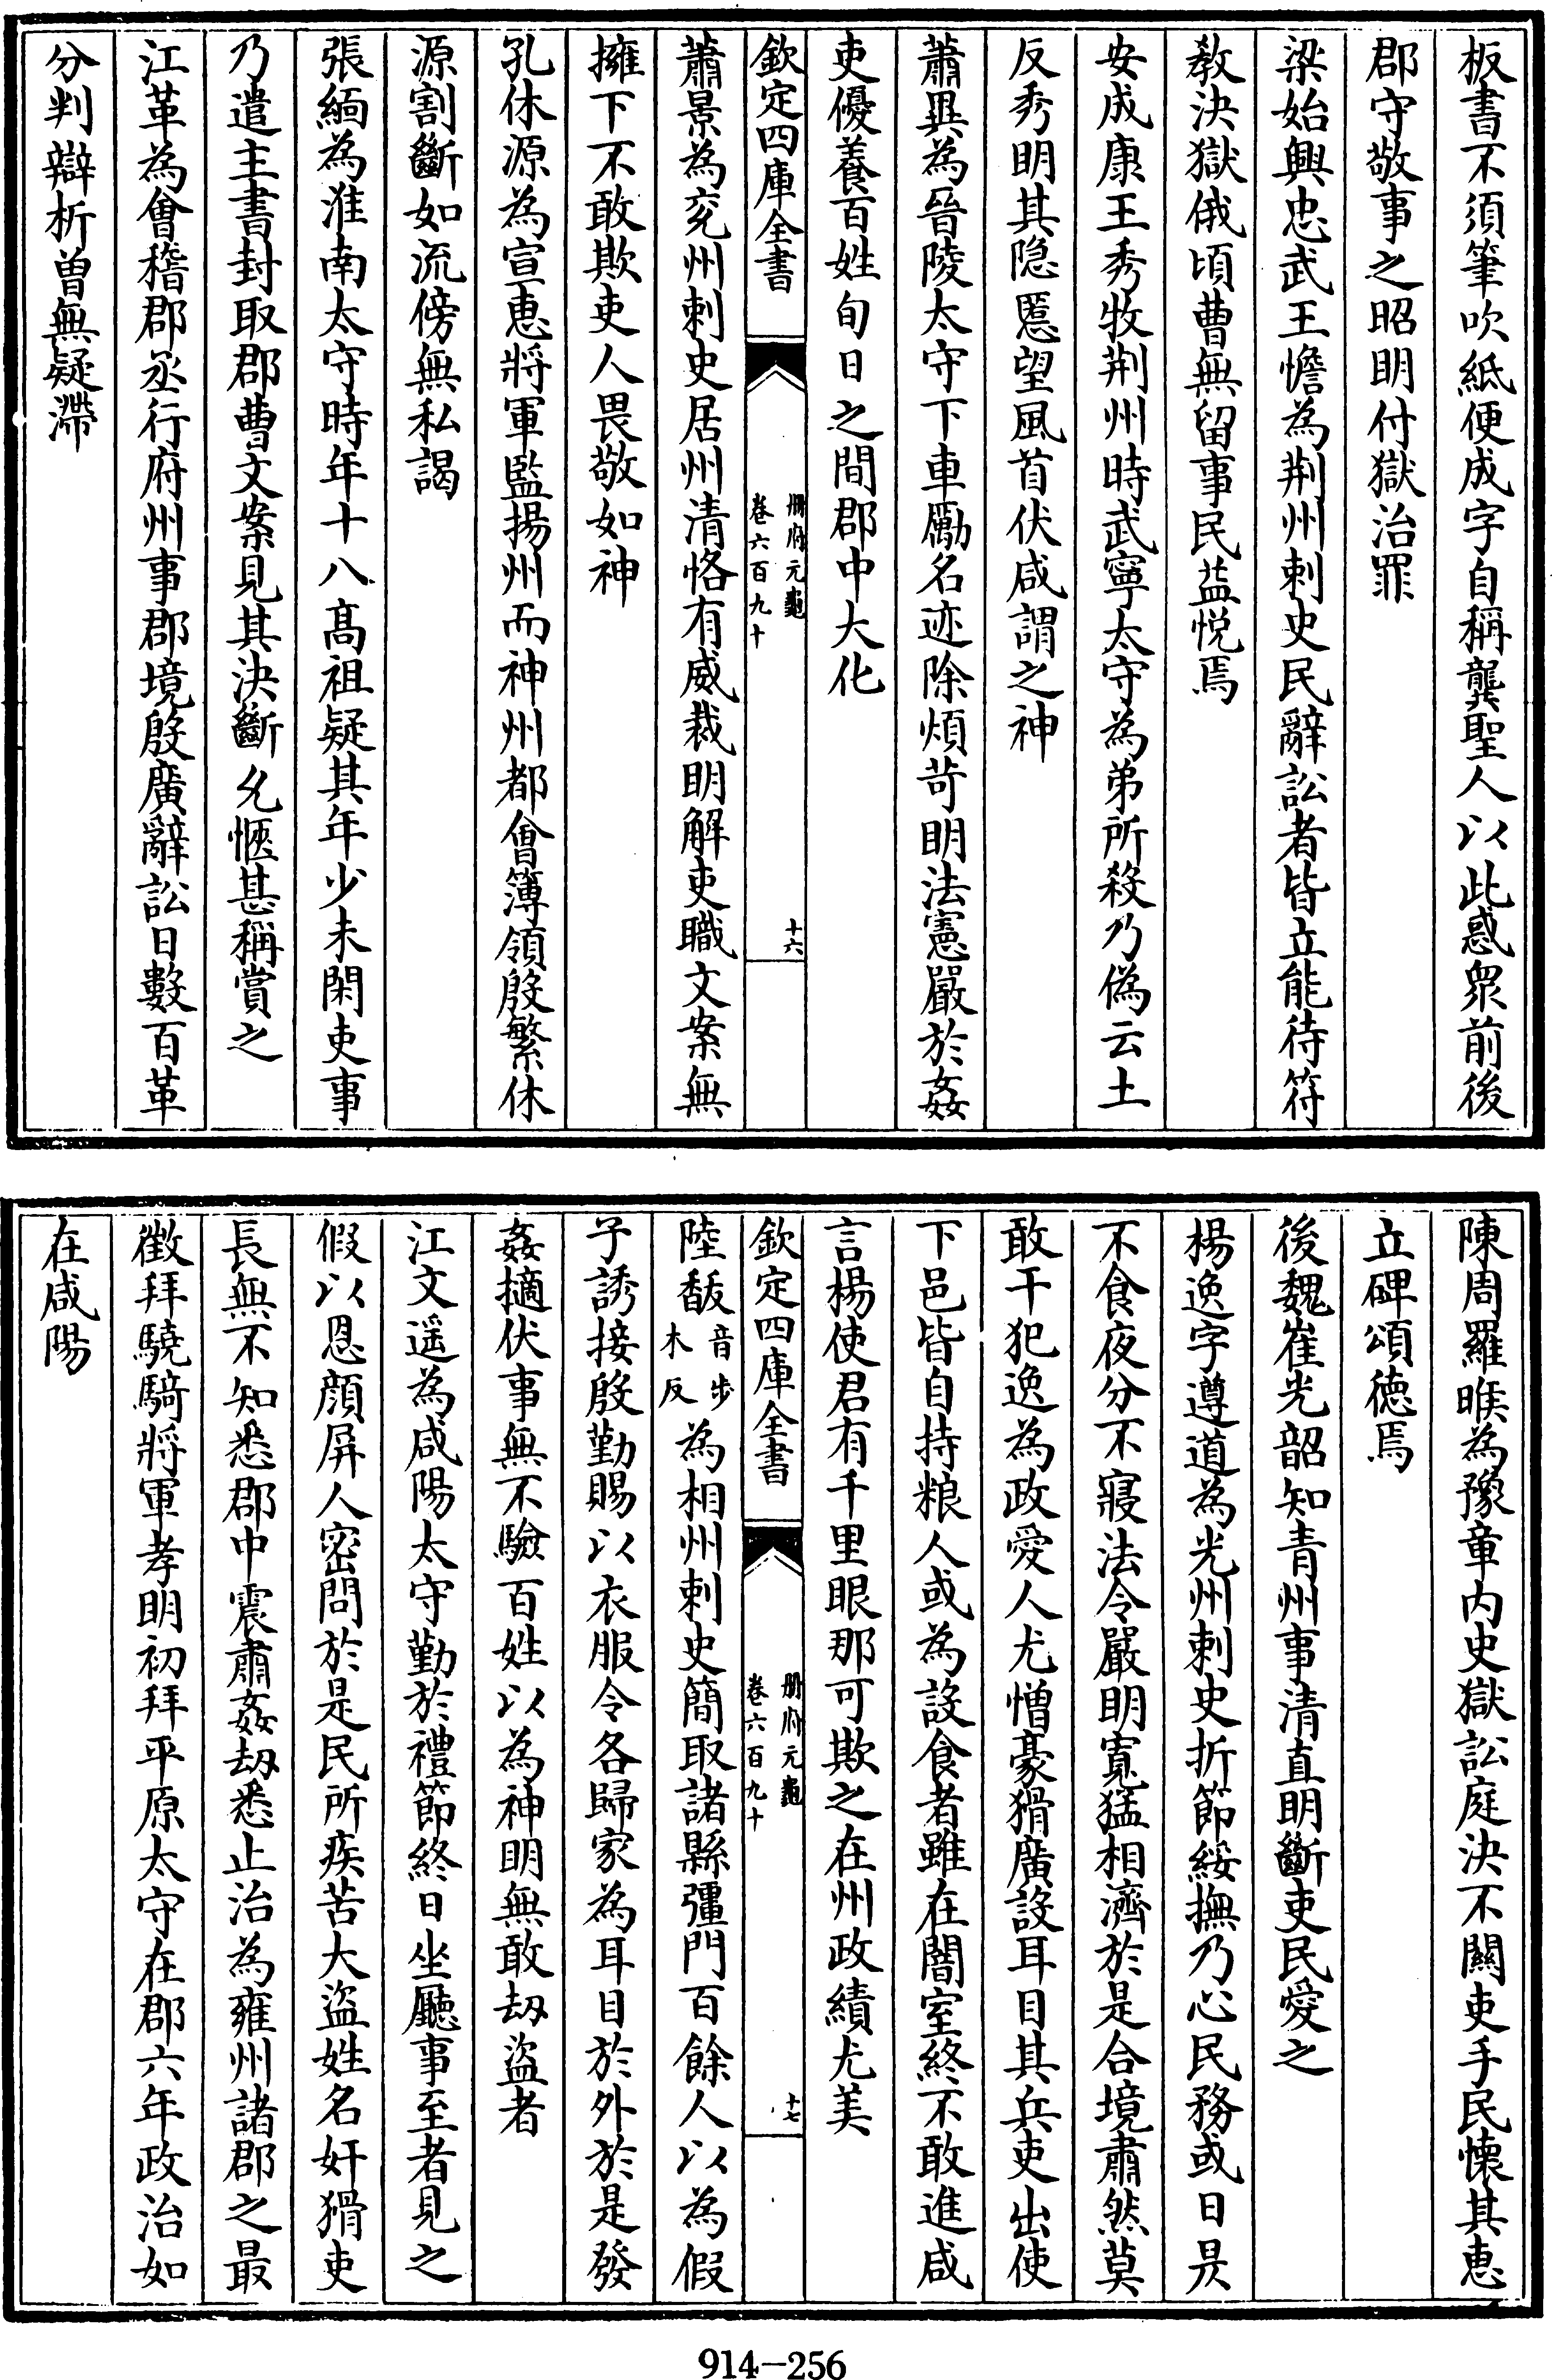 板書不須筆吹紙便成字自稱龔聖人以此惑眾前後
郡守敬事之昭明付獄治罪
梁始興忠武王憺為荆州刺史民辭訟者皆立能待符
教決獄俄頃曹無留事民益悦焉
安成康王秀牧荆州時武寧太守為弟所殺乃偽云土
反秀明其隐慝望風首伏咸謂之神
蕭㢲為晉陵太守下車勵名迹除煩苛明法憲嚴於姦
吏優養百姓旬日之間郡中大化
欽定四庫全書
册府元龜
卷六百九十
十六
蕭景為兖州刺史居州清恪有威裁明解吏職文案無
擁下不敢欺吏人畏敬如神
孔休源為宣惠將軍監揚州而神州都會簿領殷繁休
源割斷如流傍無私謁
張緬為淮南太守時年十八髙祖疑其年少未閑吏事
乃遣主書封取郡曹文案見其決斷允愜甚稱賞之
江革為會稽郡丞行府州事郡境殷廣辭訟日數百革
分判辯析曽無疑滯
陳周羅睺為豫章内史獄訟庭決不關吏手民懐其惠
立碑頌徳焉
後魏崔光韶知青州事清直明斷吏民愛之
楊逸字遵道為光州刺史折節綏撫乃心民務或日昃
不食夜分不寢法令嚴明寛猛相濟於是合境肅然莫
敢干犯逸為政愛人尤憎豪猾廣設耳目其兵吏出使
下邑皆自持粮人或為設食者雖在闇室終不敢進咸
言楊使君有千里眼那可欺之在州政績尤美
欽定四庫全書
册府元龜
卷六百九十
十七
陸馛音步木反為相州刺史簡取諸縣彊門百餘人以為假
子誘接殷勤賜以衣服令各歸家為耳目於外於是發
姦擿伏事無不驗百姓以為神明無敢刼盗者
江文遥為咸陽太守勤於禮節終日坐廳事至者見之
假以恩顔屏人密問於是民所疾苦大盗姓名奸猾吏
長無不知悉郡中震肅姦刼悉止治為雍州諸郡之最
徴拜驍騎將軍孝明初拜平原太守在郡六年政治如
在咸陽
914-256